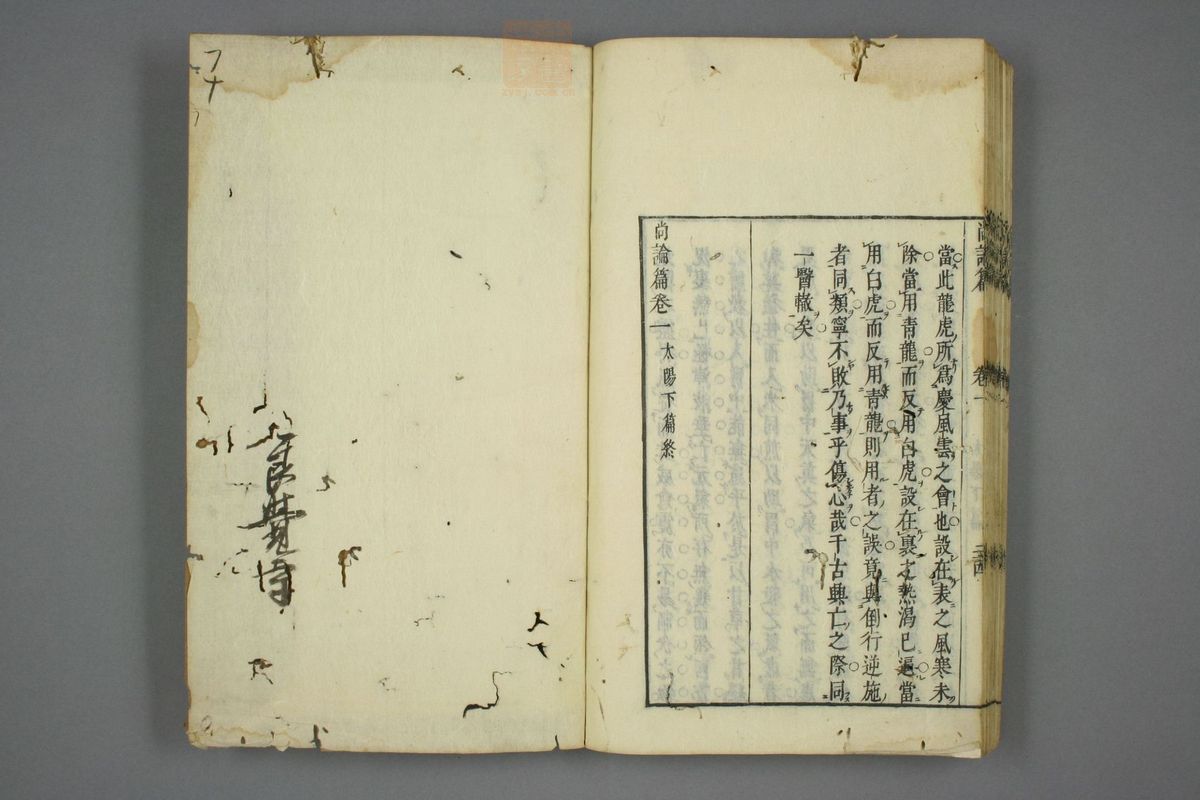 尚論篇 卷一
當此龍虎所爲慶風雲之會也設在表之風寒未
除當用青龍而反用白虎設在裏之熱渴已逼當
用白虎而反用青龍則用者之誤竟與倒行逆施
者同類寧不敗乃事乎傷心哉千古興亡之際同
一醫轍矣
尚論篇卷一 太陽下篇終
zysj.com.cn